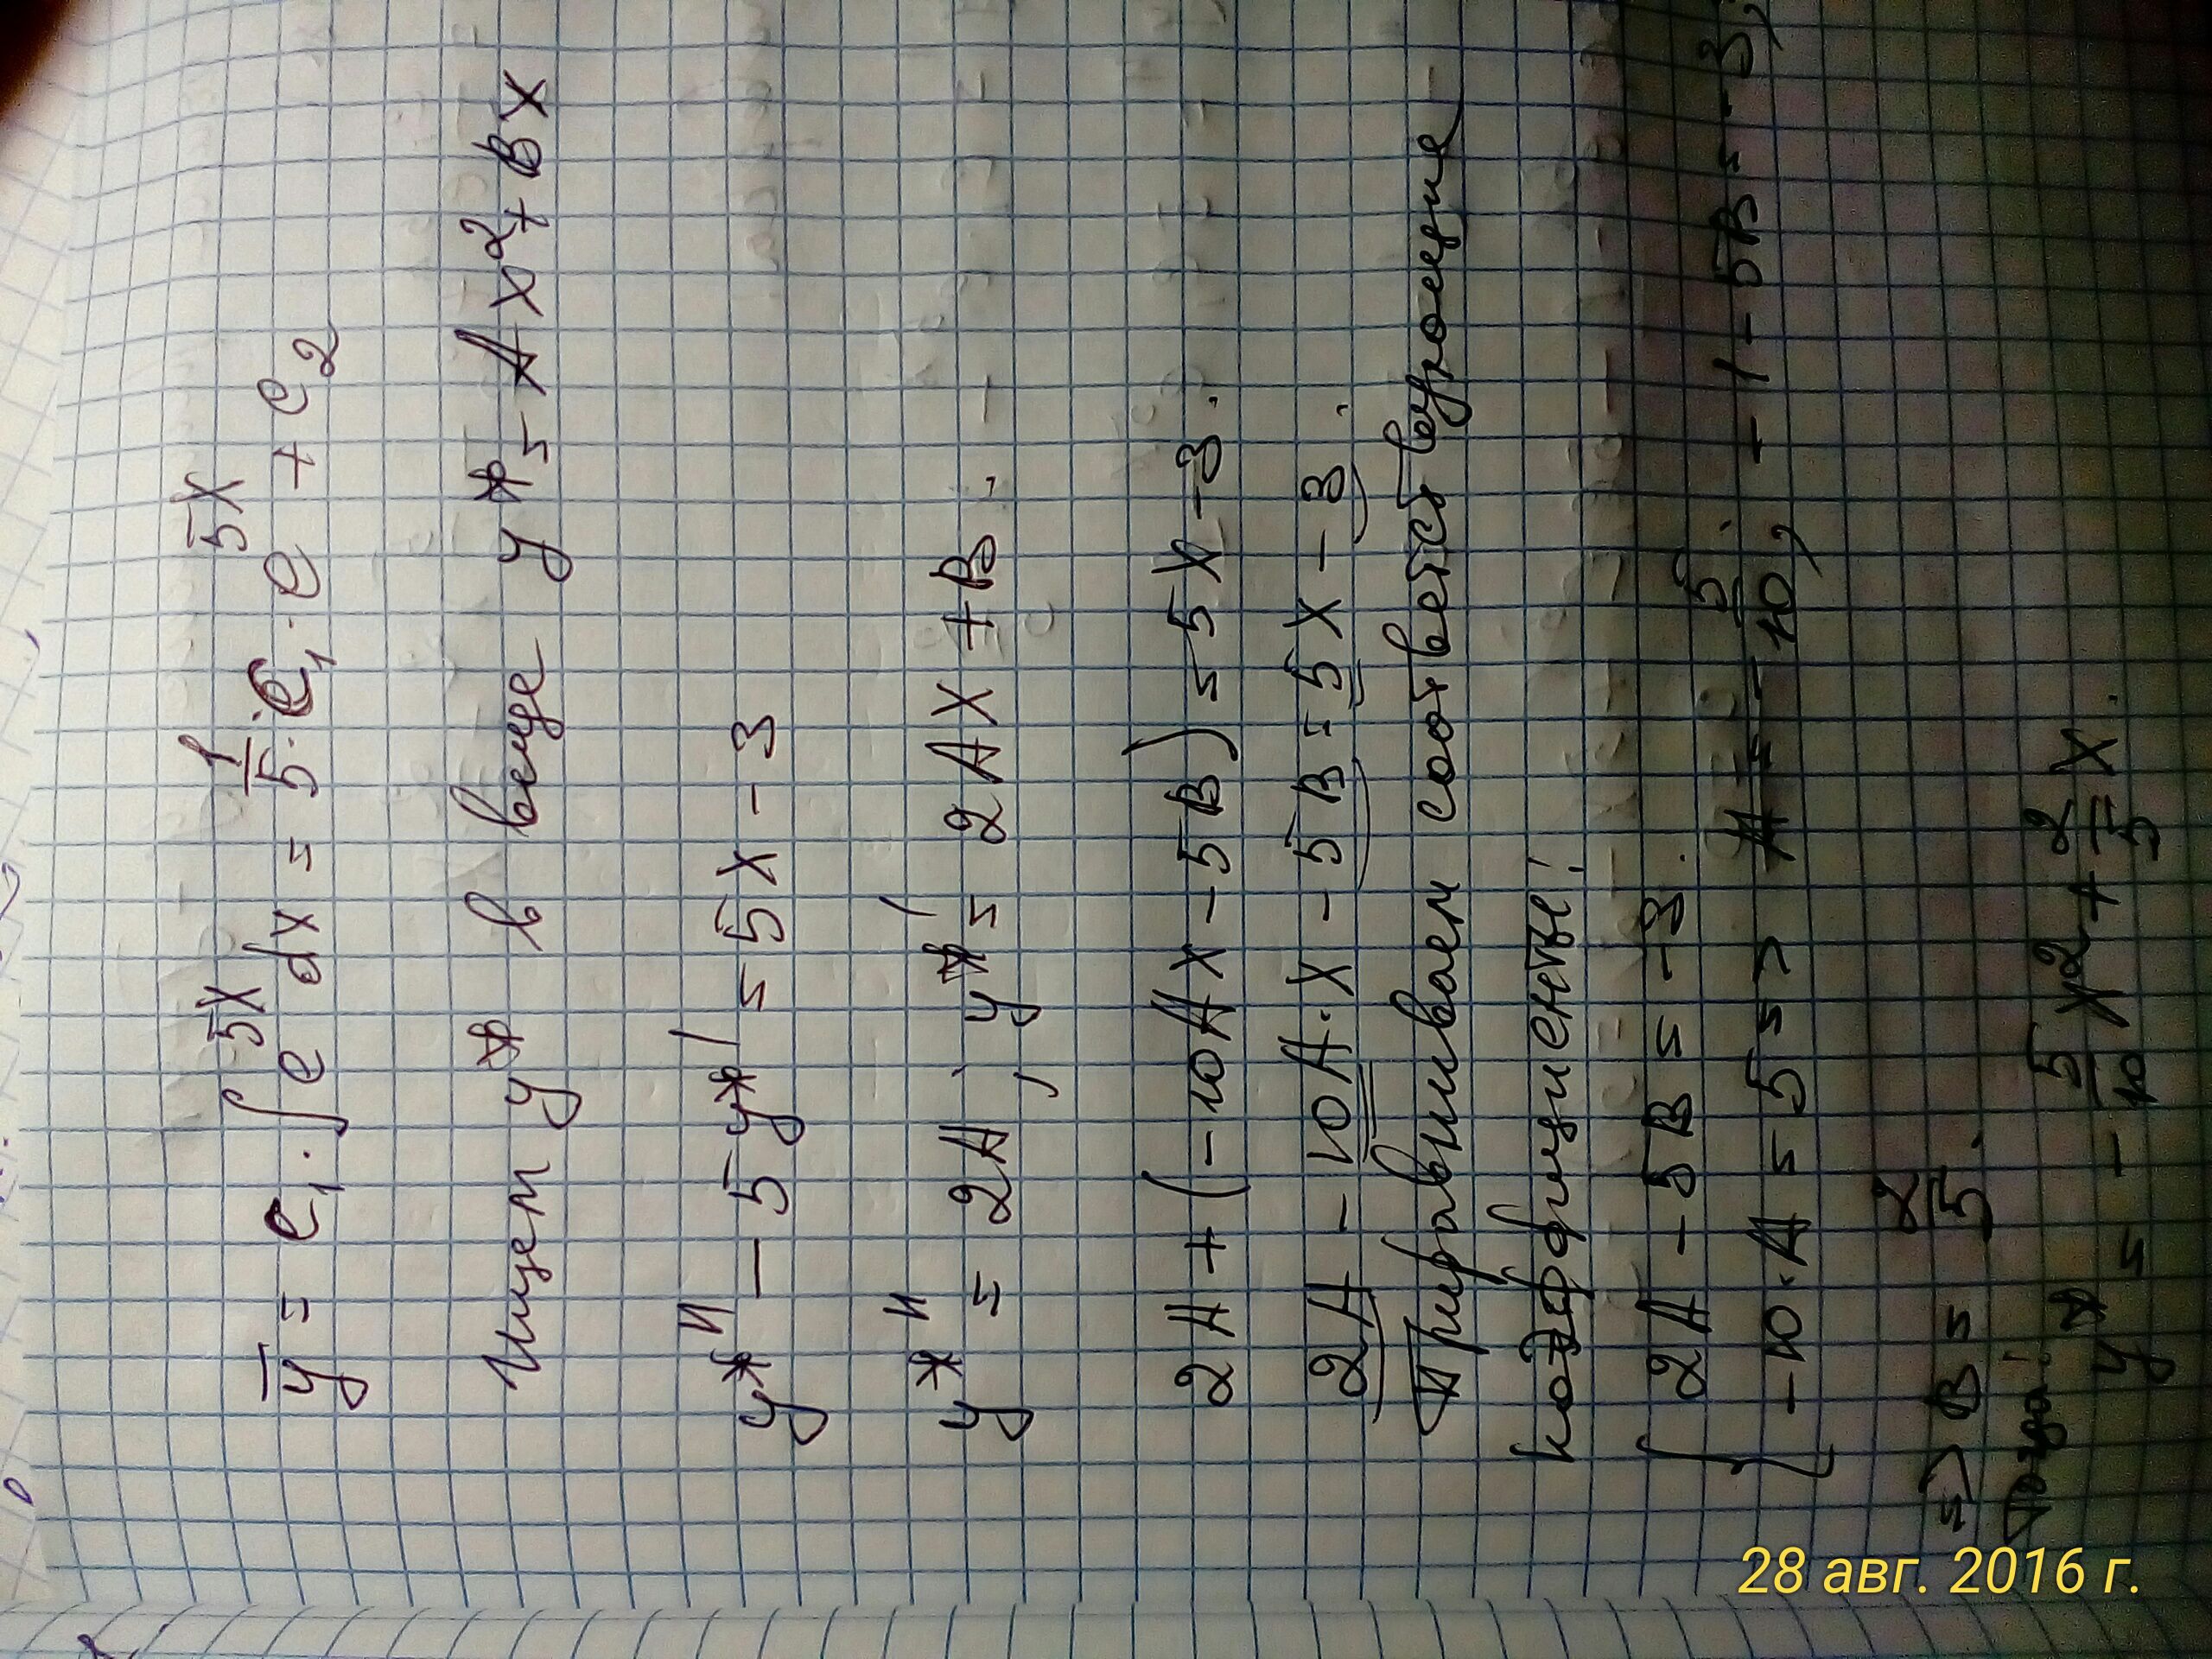 ȳ = c₁ · ∫ e^{5x} dx = 1/5 · c₁ · e^{5x} + c₂
Ищем y* в виде y* = Ax² + Bx
y*'' − 5y*' = 5x − 3
y*'' = 2A ; y*' = 2Ax + B.
2A + (−10Ax − 5B) = 5x − 3.
2A − 10A·x − 5B = 5x − 3.
Приравниваем соответствующие
коэффициенты!
{ 2A − 5B = −3.
−10·A = 5 => A = −5/10; −1 − 5B = −3;
=> B = 2/5.
Тогда:
y* = −5/10 x² + 2/5 x.
28 авг. 2016 г.